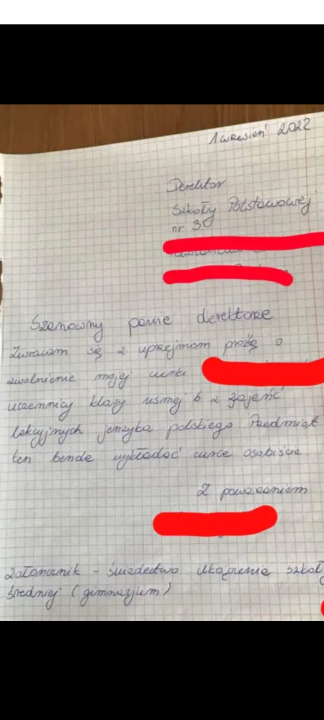 1 wresień 2022
Derektor
Szkoły Potstawowej
nr 3
Szanowny panie derektorze
Zwracam sę z uprejmom proźbą o
zwolnienie mojej curki
uczennicy klasy usmej b z zajeńć
lekcyjnych jenzyka polskiego Pszedmiat
ten bende wykładać curce osobiście
Z powarzaniem
Załoncznik - świadectwo ukączenia szkoły
średniej (gimnazjum)